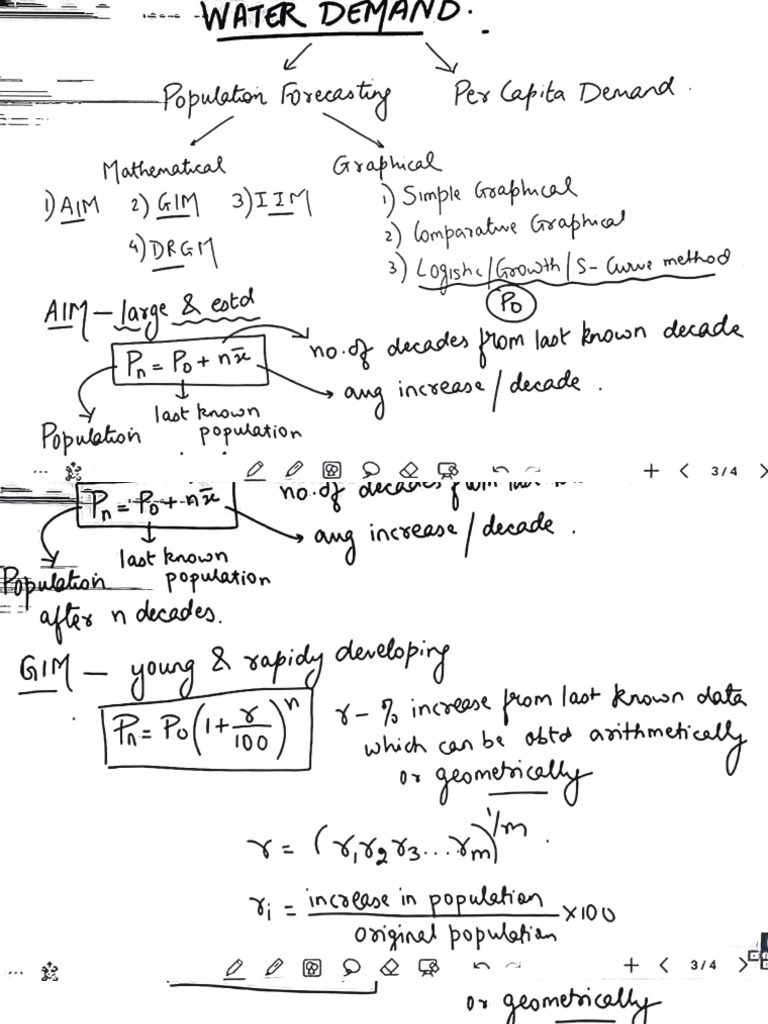 WATER DEMAND.
Population Forecasting Per Capita Demand.
Mathematical Graphical
1) AIM 2) GIM 3) IIM 1) Simple Graphical
4) DRGM 2) Comparative Graphical
3) Logistic/Growth/S-Curve method
P₀
AIM – large & estd
Pₙ = P₀ + nx̄ no. of decades from last known decade
avg increase / decade.
last known
Population population
... + < 3/4 >
Pₙ = P₀ + nx̄ no. of decades from last
avg increase / decade.
last known
Population population
after n decades.
GIM – young & rapidy developing
Pₙ = P₀(1 + r/100)ⁿ r – % increase from last known data
which can be obtd arithmetically
or geometrically
r = (r₁r₂r₃...rₘ)^1/m.
rᵢ = increase in population / original population ×100
... + < 3/4 >
or geometrically